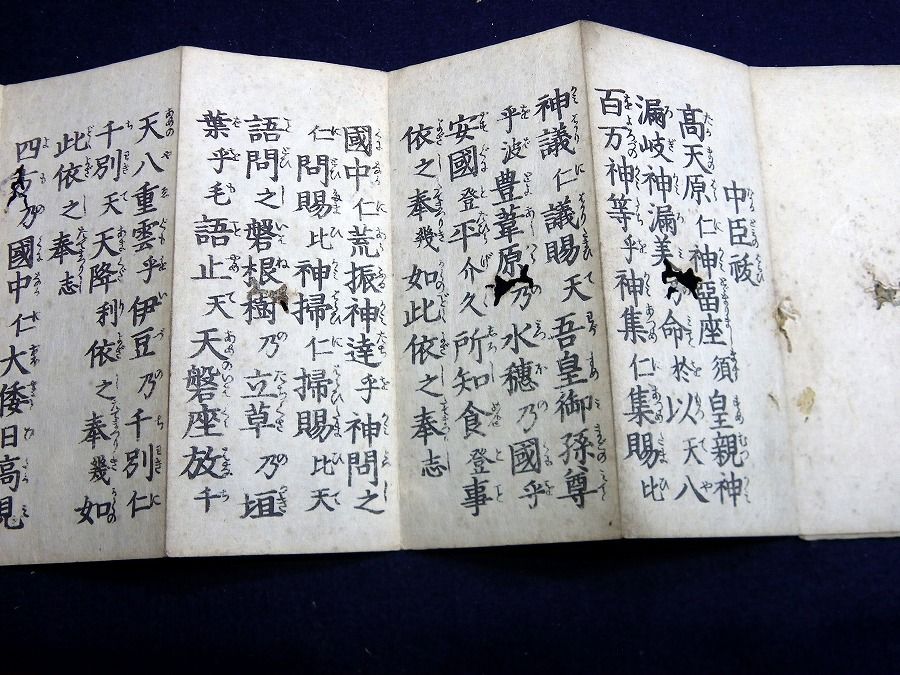 中臣祓
高天原仁神畱座須皇親神
漏岐神漏美乃命於以天八
百万神等乎神集仁集賜比
神議仁議賜天吾皇御孫尊
乎波豊葦原乃水穂乃國乎
安國登平介久所知食登事
依之奉幾如此依之奉志
國中仁荒振神達乎神問之
仁問賜比神掃仁掃賜比天
語問之磐根樹乃立草乃垣
葉乎毛語止天天磐座放千
天八重雲乎伊豆乃千別仁
千別天天降利依之奉幾如
此依之奉志
四方乃國中仁大倭日高見